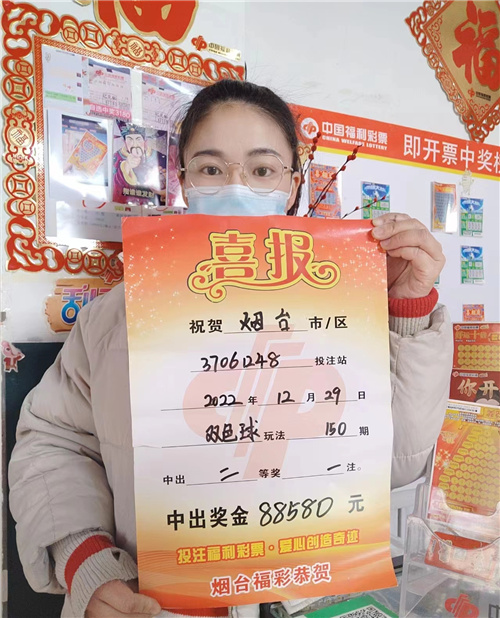 中国福利彩票
CHINA WELFARE LOTTERY
即开票中奖
福
喜报
祝贺 烟台 市/区
37061248 投注站
2022 年 12 月 29 日
双色球 玩法 150 期
中出 二 等奖 一 注。
中出奖金 88580 元
投注福利彩票·爱心创造奇迹
烟台福彩恭贺
你开